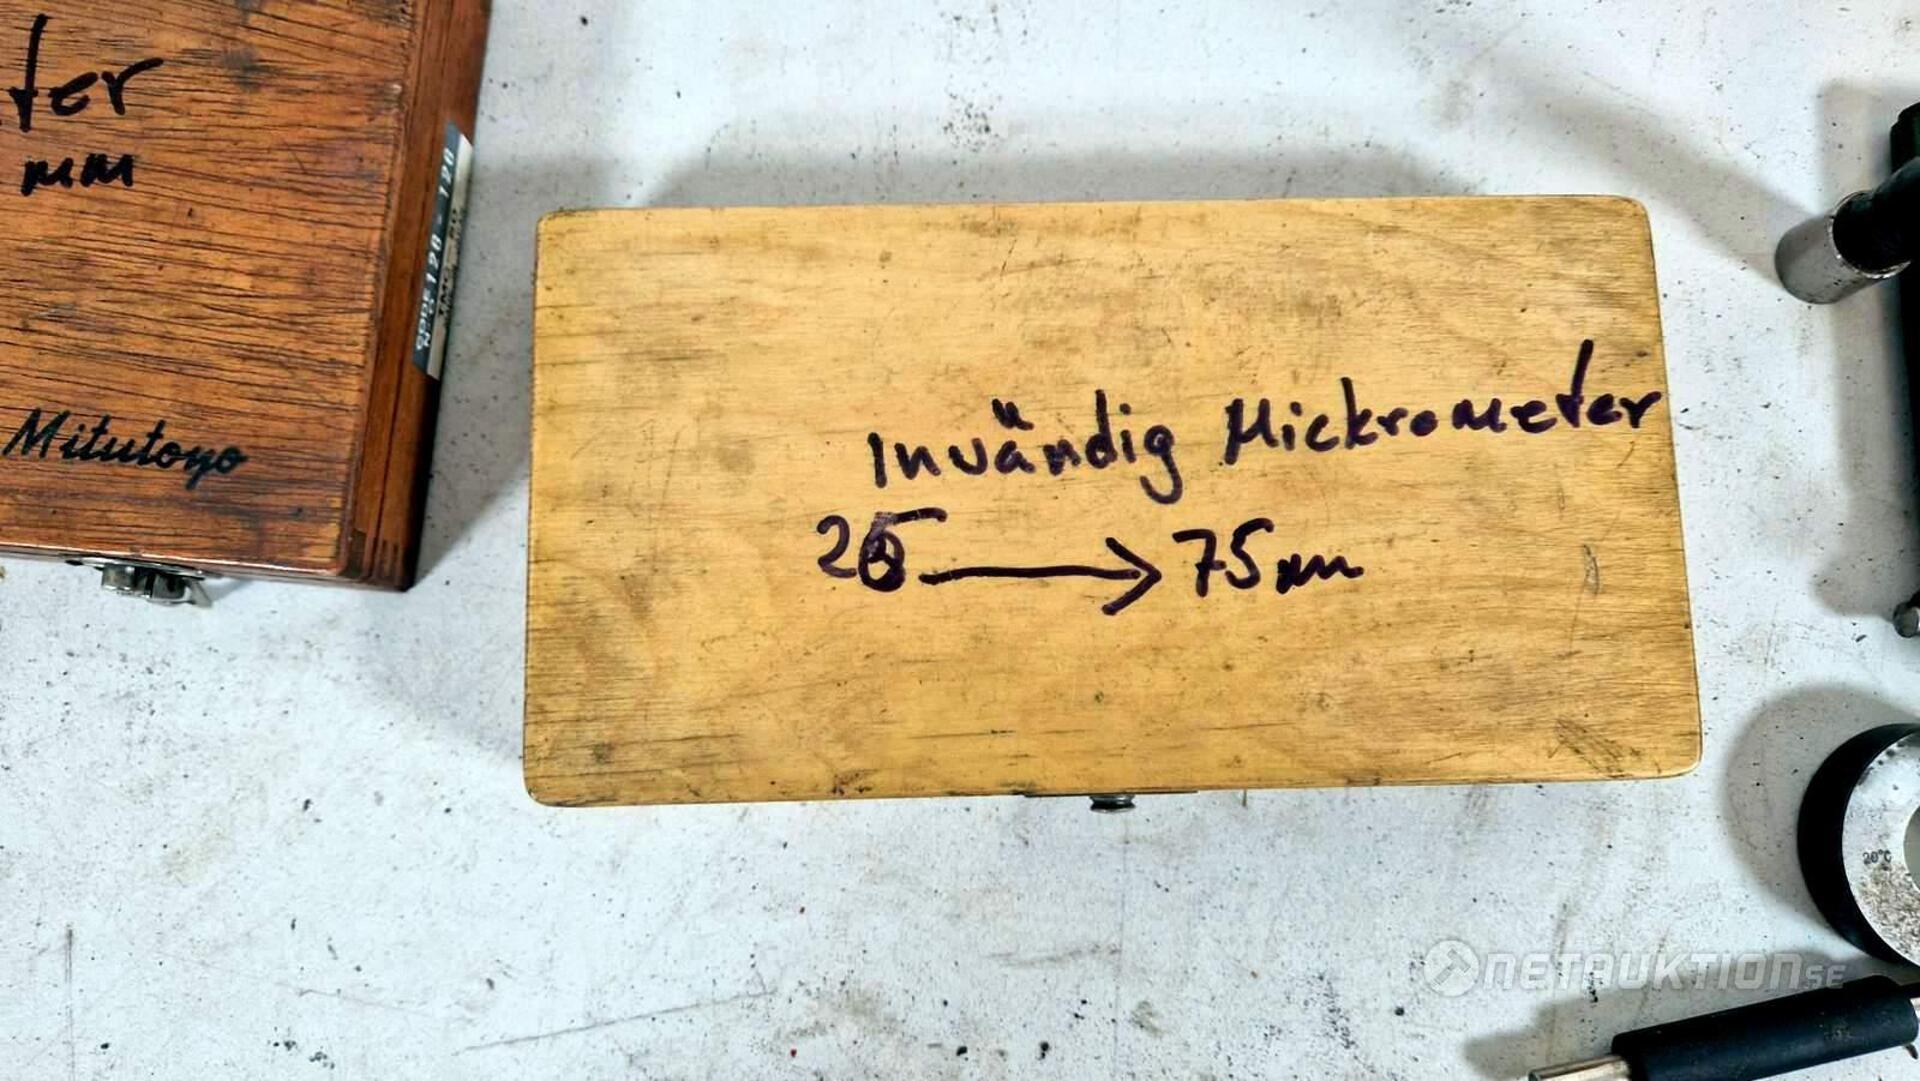 ter
mm
Mitutoyo
Invändig Mickrometer
25 → 75 mm
20°C
NETAUKTION.SE